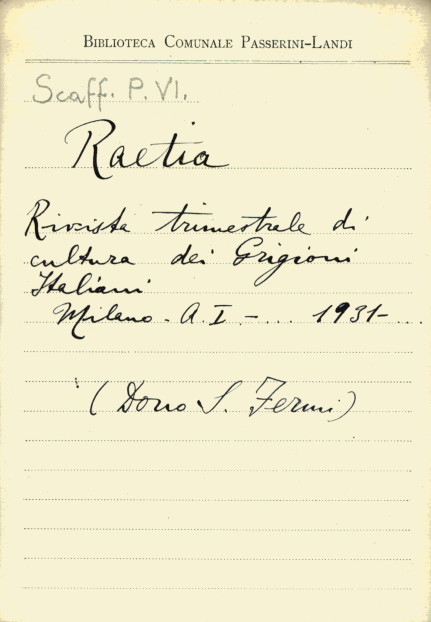 BIBLIOTECA COMUNALE PASSERINI-LANDI
Scaff. P. VI.
Raetia
Rivista trimestrale di
cultura dei Grigioni
Italiani
Milano - A. I - ... 1931- ...
(Dono S. Fermi)